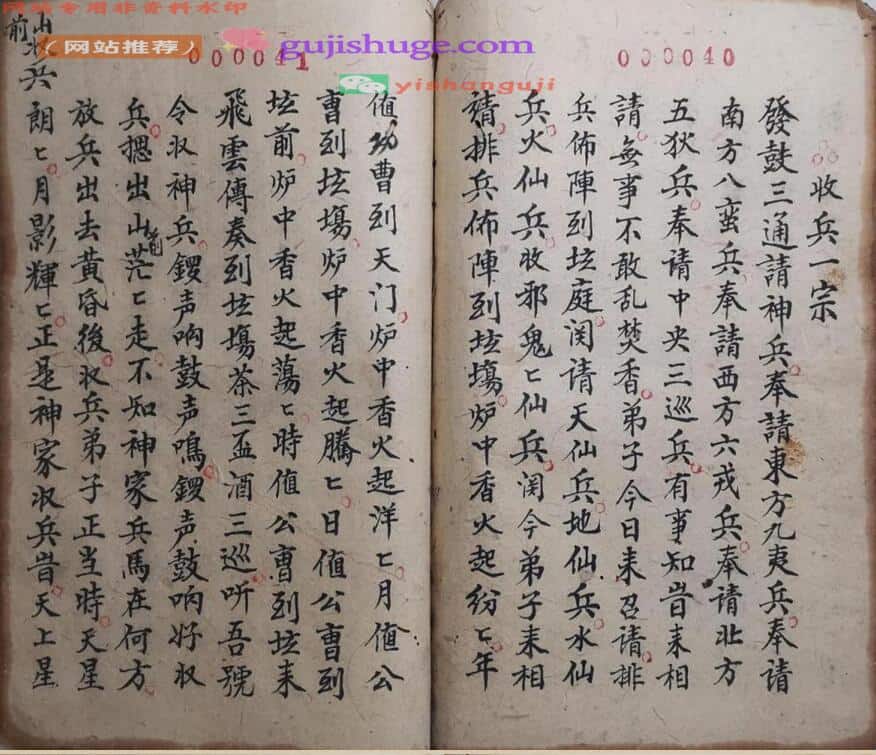 网站专用非资料水印
（网站推荐）
gujishuge.com
yishanguji
000040
收兵一宗
發鼓三通請神兵奉請東方九夷兵奉请
南方八蛮兵奉請西方六戎兵奉请北方
五狄兵奉请中央三巡兵有事知皆来相
請無事不敢乱焚香弟子今日来召请排
兵佈陣到坛庭関请天仙兵地仙兵水仙
兵火仙兵收邪鬼匕仙兵関今弟子来相
請排兵佈陣到坛塲炉中香火起纷匕年
000041
值功曹到天门炉中香火起洋匕月值公
曹到坛塲炉中香火起騰匕日值公曹到
坛前炉中香火起蕩匕時值公曹到坛来
飛雲傳奏到坛塲茶三盃酒三巡听吾號
令収神兵鑼声响鼓声鳴鑼声鼓响好収
兵摁出山前茫匕走不知神家兵馬在何方
放兵出去黄昏後収兵弟子正当時天星
朗匕月影輝匕正是神家収兵旹天上星
山前収兵